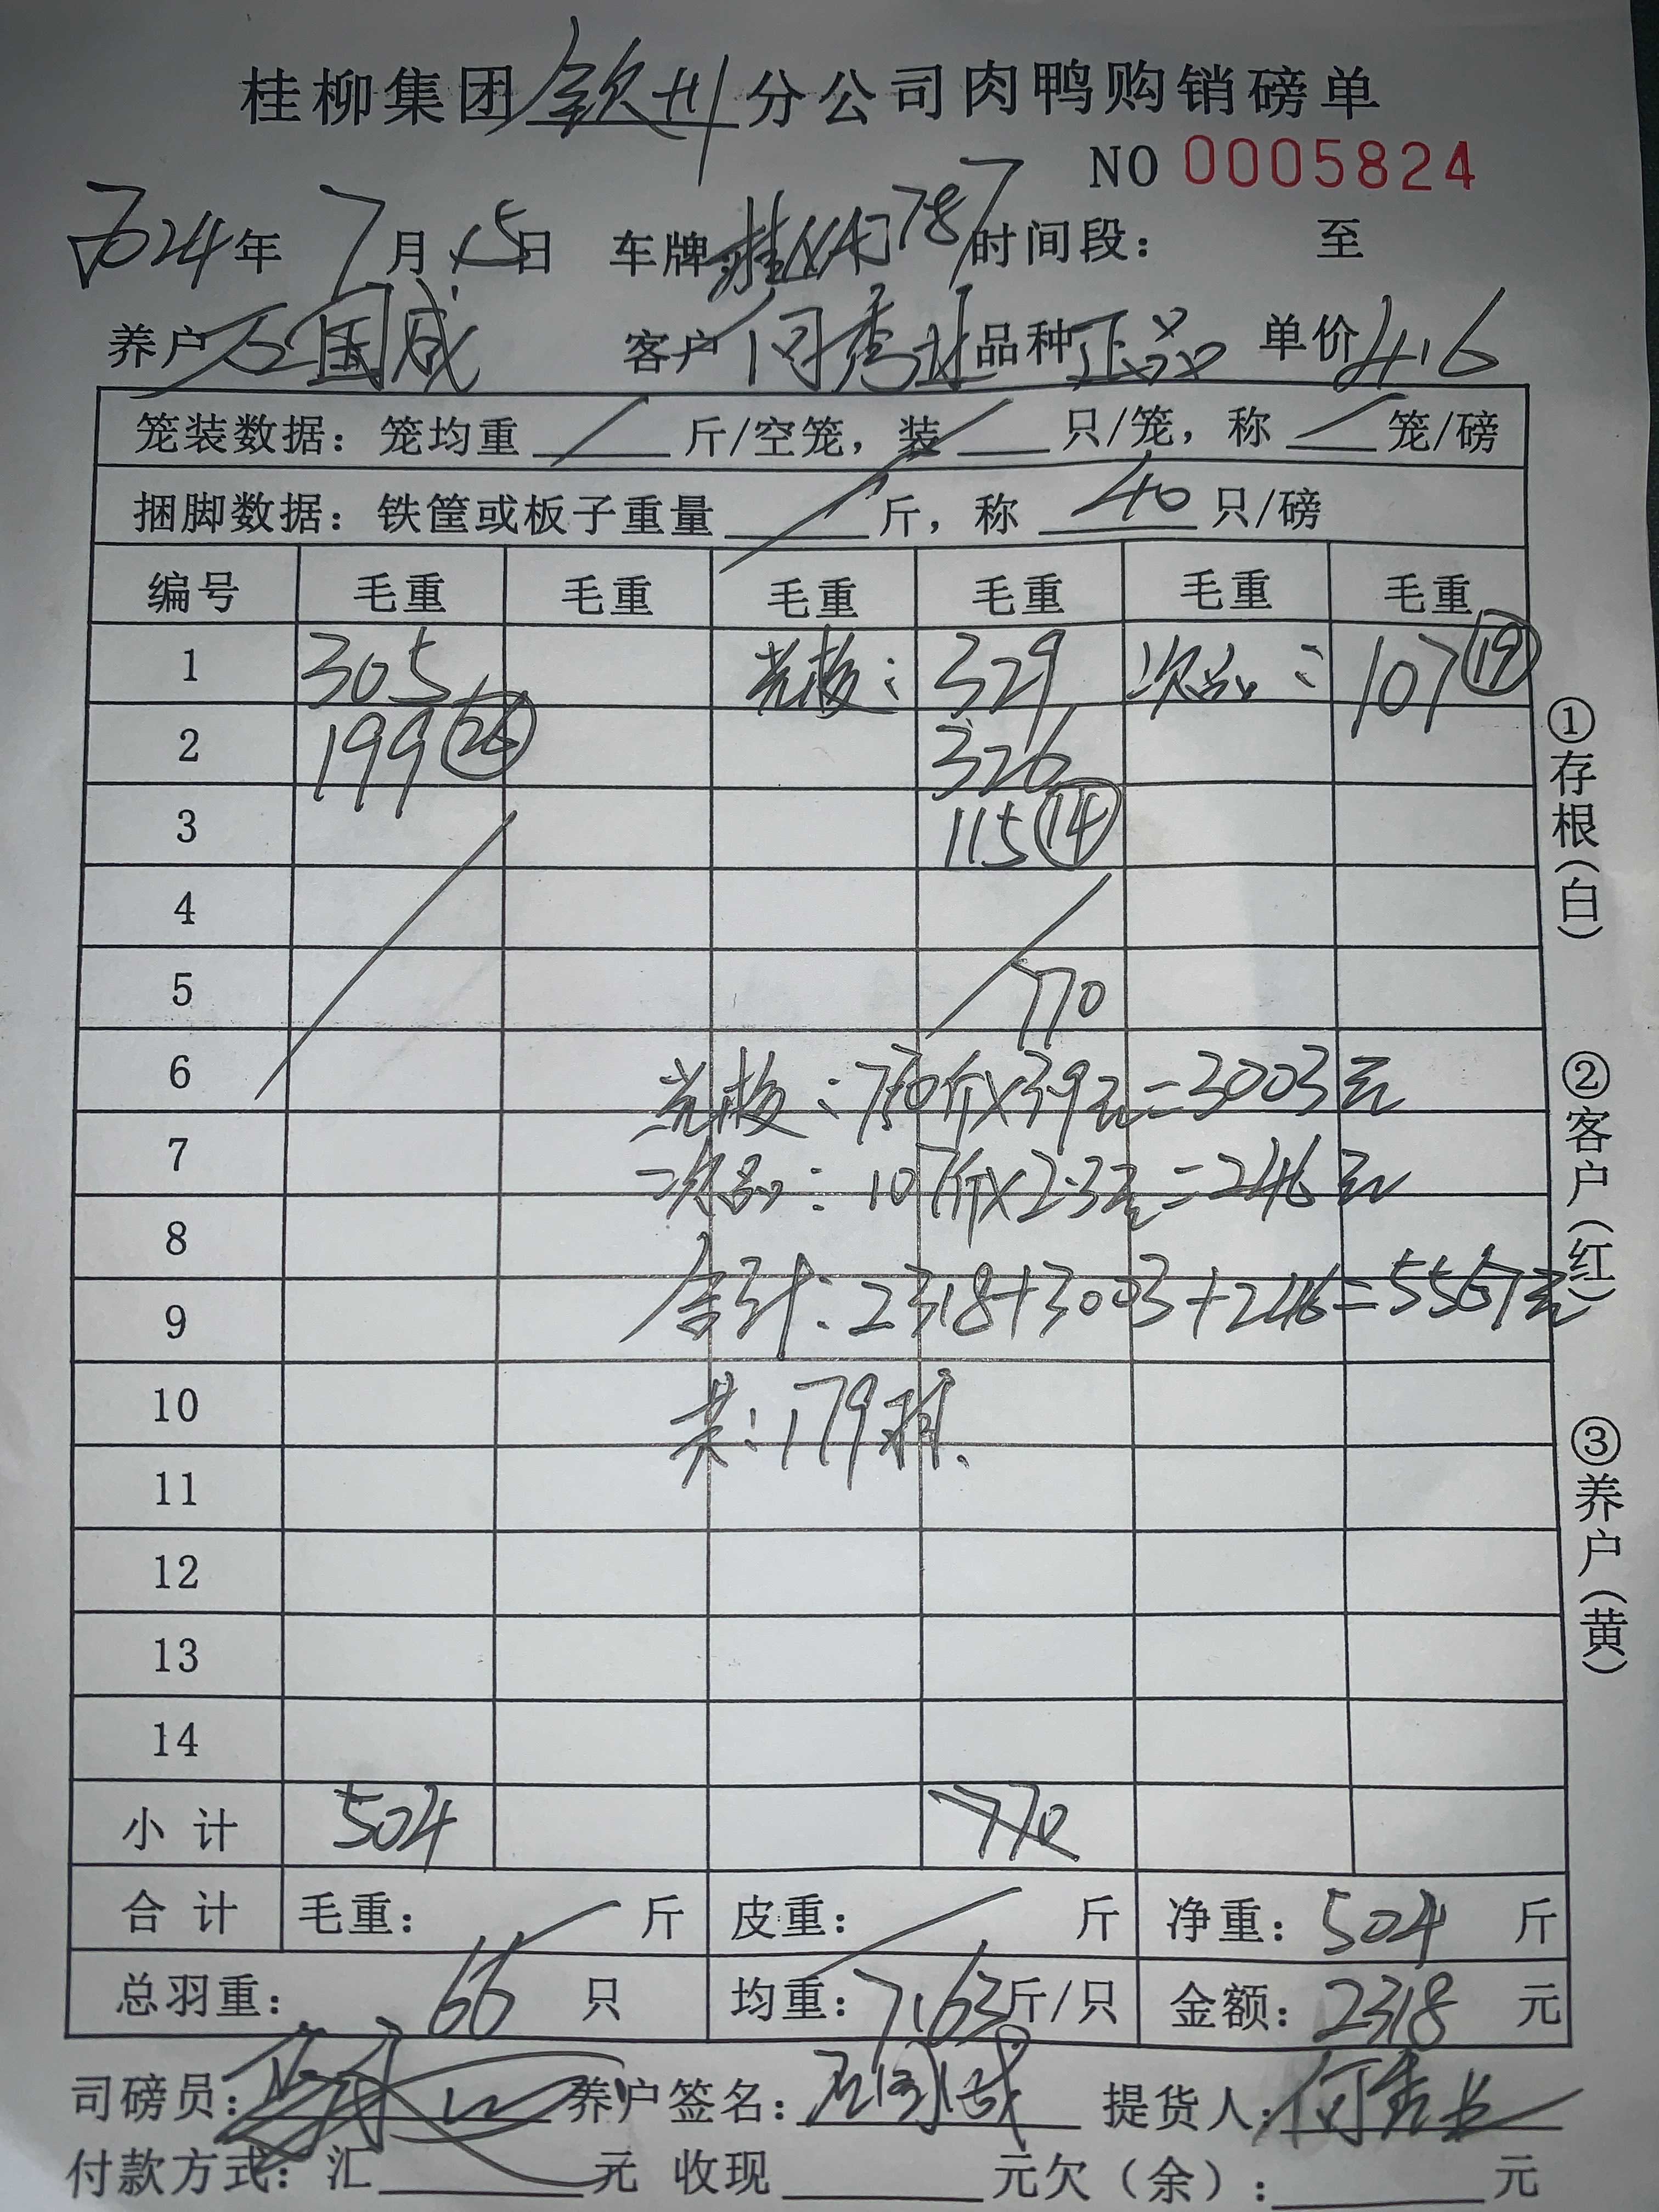 桂柳集团钦州分公司肉鸭购销磅单
NO 0005824
2024年 7月15日 车牌:桂 787 时间段: 至
养户 石国成 客户 何秀 品种 正品 单价 4.6
笼装数据: 笼均重 / 斤/空笼, 装 / 只/笼, 称 / 笼/磅
捆脚数据: 铁筐或板子重量 / 斤, 称 40 只/磅
编号 毛重 毛重 毛重 毛重 毛重 毛重
1 305 光板: 329 次品: 107 ⑲
2 199 ㉖ 326
3 115 ⑭
4
5 770
6 光板: 770斤×3.9元=3003元
7 次品: 107斤×2.3元=246元
8
9 合计: 2318+3003+246=5567元
10 共: 179
11
12
13
14
小 计 504 770
合 计 毛重: / 斤 皮重: / 斤 净重: 504 斤
总羽重: 66 只 均重: 7.63斤/只 金额: 2318 元
司磅员: 养户签名: 石国成 提货人: 何秀
付款方式: 汇 元 收现 元欠(余): 元
①存根(白)
②客户(红)
③养户(黄)